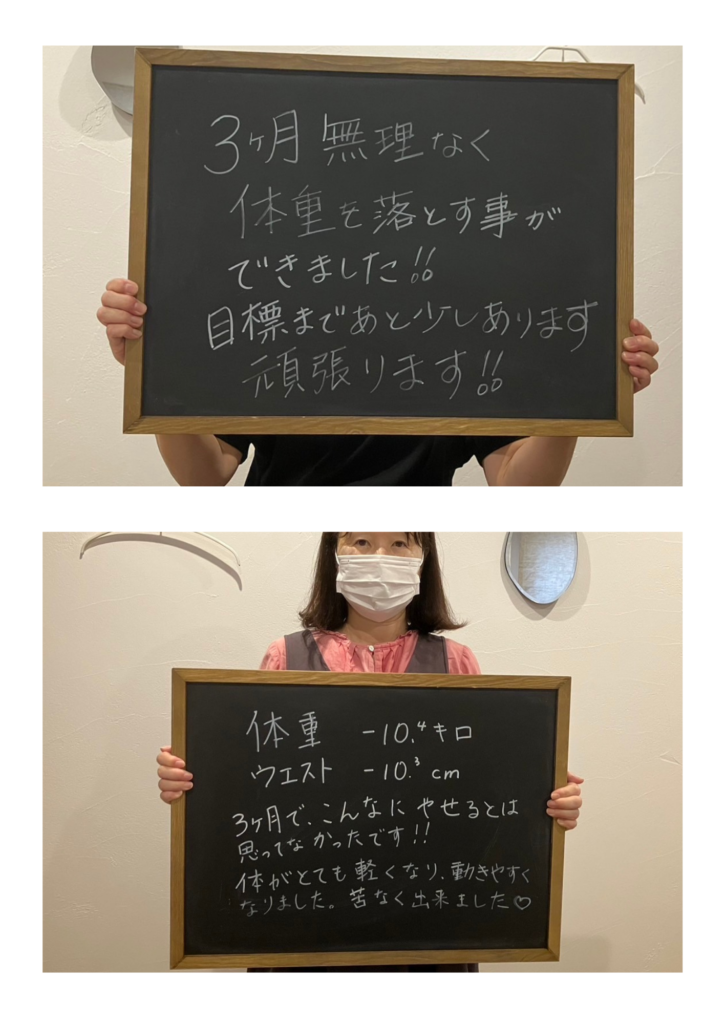 3ヶ月 無理なく
体重を落とす事が
できました!!
目標まであと少しあります
頑張ります!!
体重 -10.4キロ
ウエスト -10.3 cm
3ヶ月で、こんなに やせるとは
思ってなかったです!!
体がとても 軽くなり、動きやすく
なりました。苦なく出来ました♡